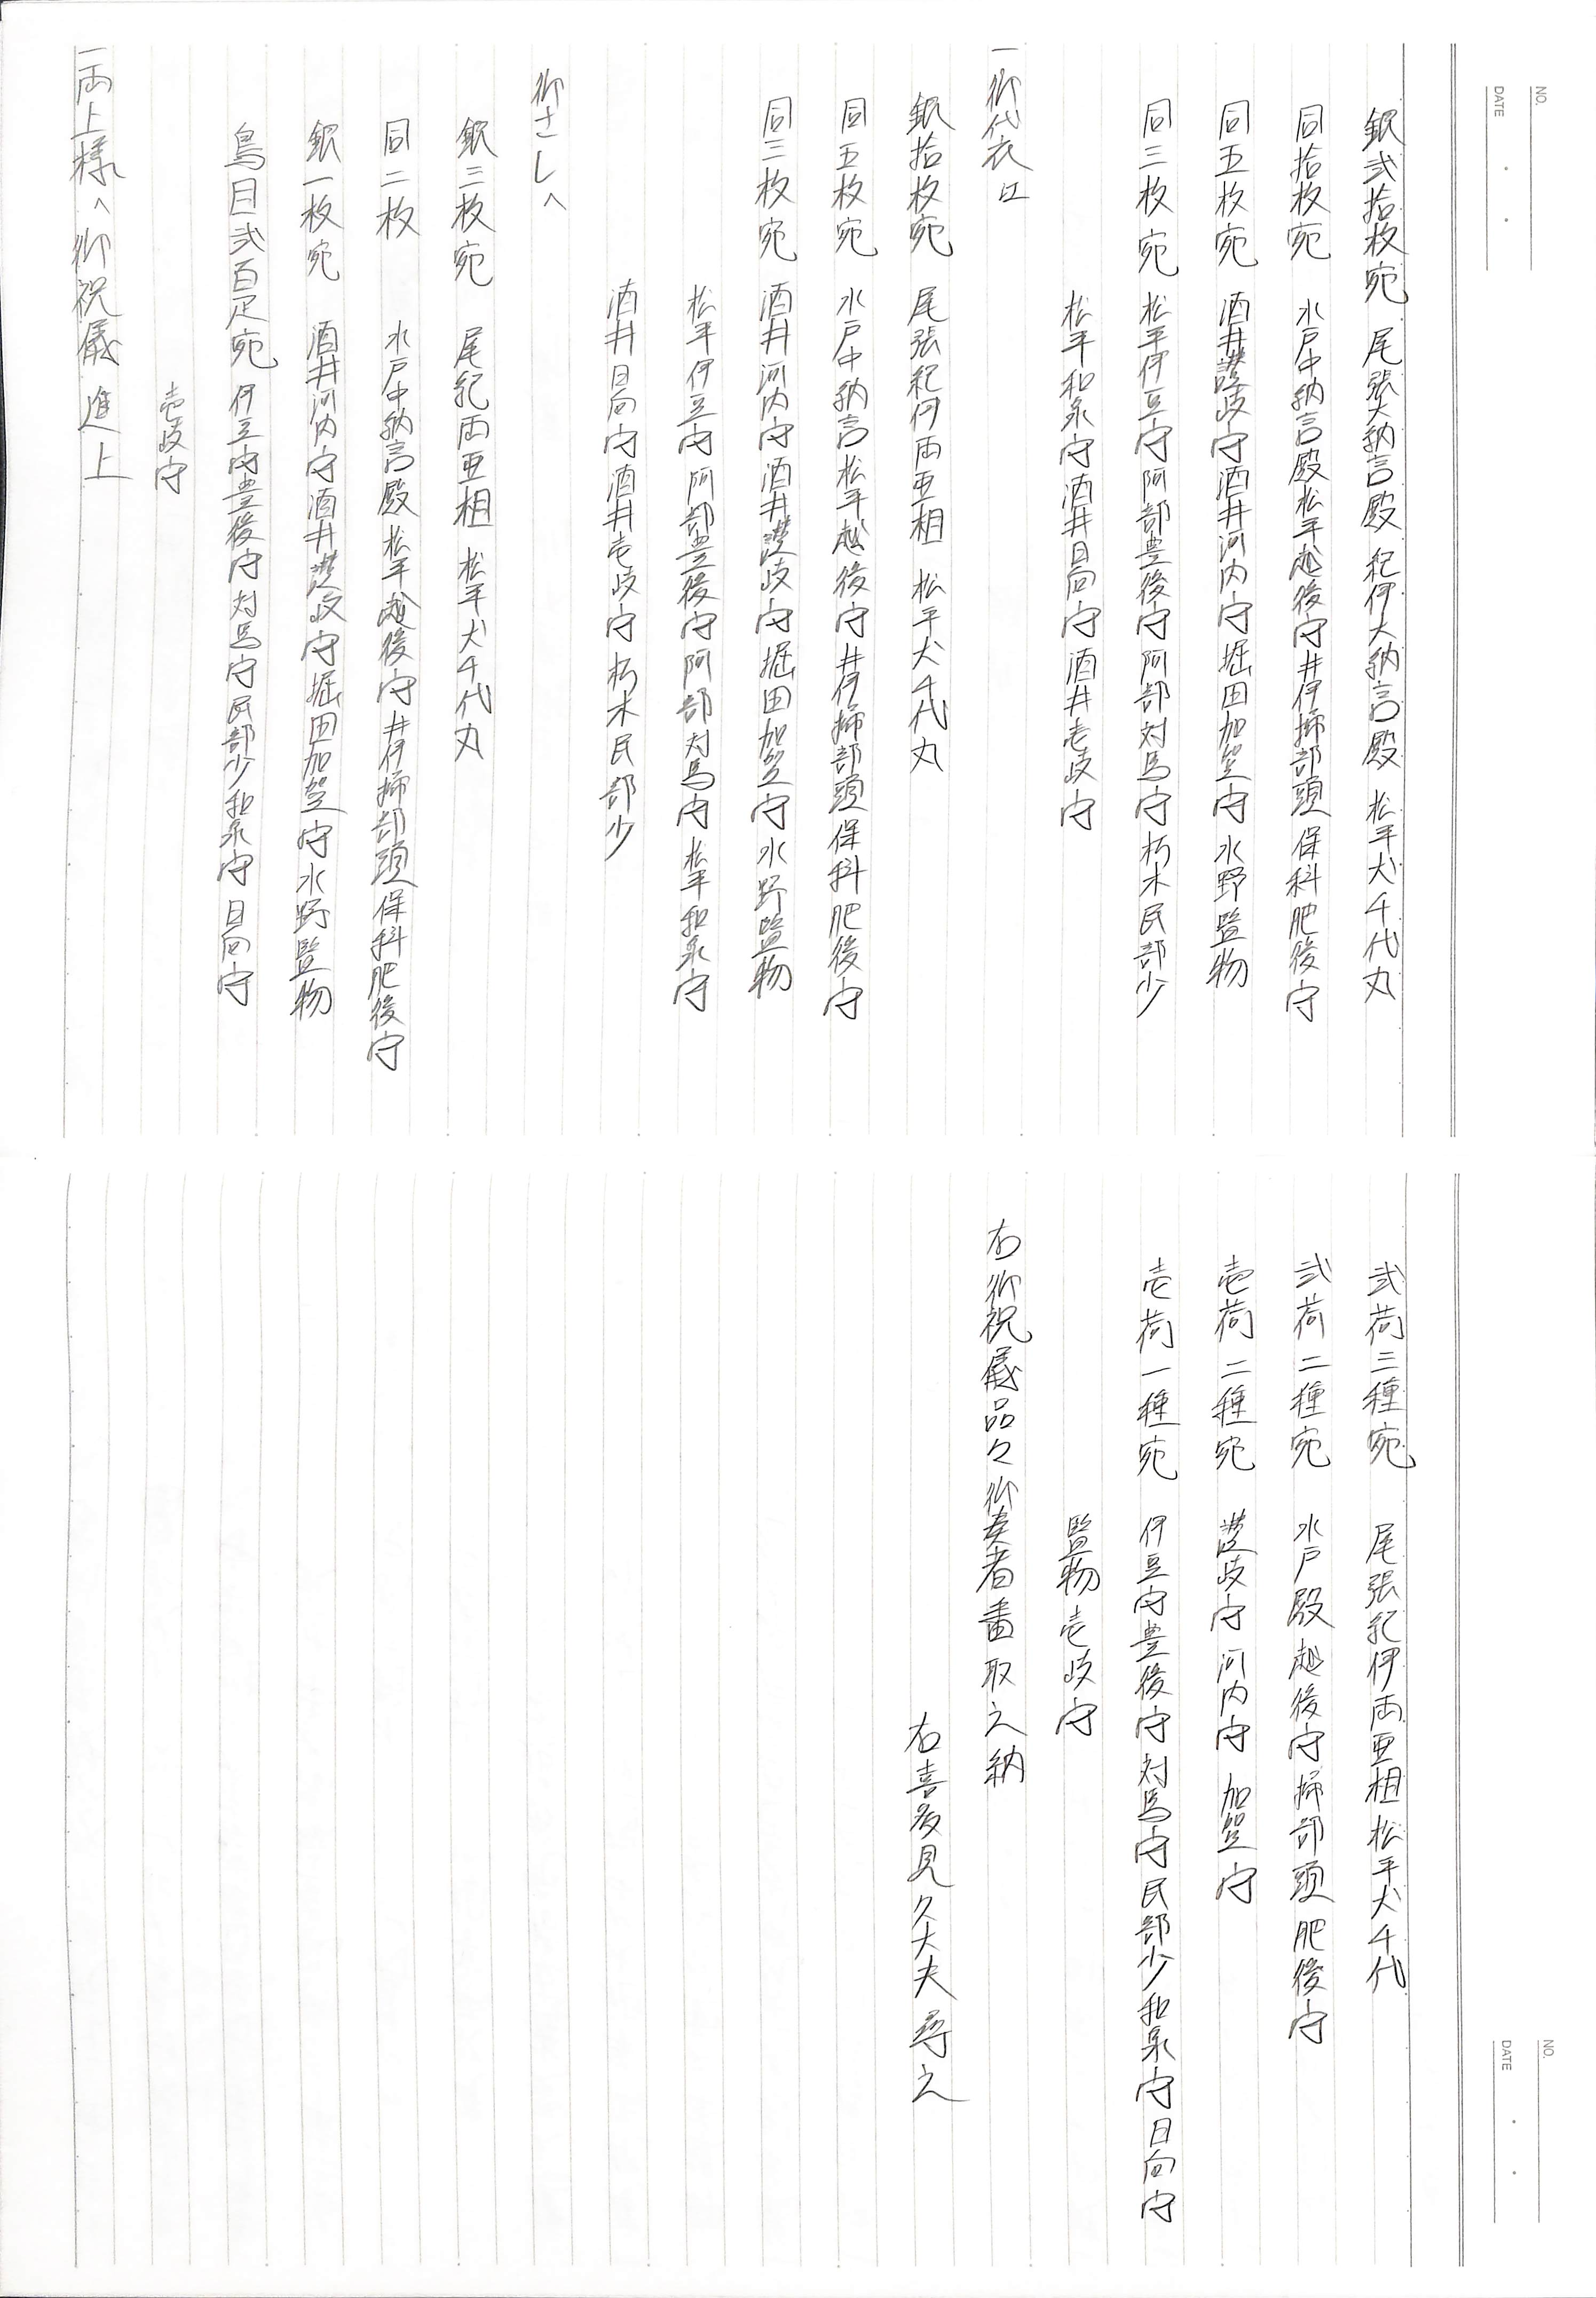 NO.
DATE
銀弐拾枚宛 尾張大納言殿 紀伊大納言殿 松平犬千代丸
同拾枚宛 水戸中納言殿 松平越後守 井伊掃部頭 保科肥後守
同五枚宛 酒井讃岐守 酒井河内守 堀田加賀守 水野監物
同三枚宛 松平伊豆守 阿部豊後守 阿部対馬守 朽木民部少
松平和泉守 酒井日向守 酒井壱岐守
一御代衣江
銀拾枚宛 尾張紀伊両亜相 松平犬千代丸
同五枚宛 水戸中納言 松平越後守 井伊掃部頭 保科肥後守
同三枚宛 酒井河内守 酒井讃岐守 堀田加賀守 水野監物
松平伊豆守 阿部豊後守 阿部対馬守 松平和泉守
酒井日向守 酒井壱岐守 朽木民部少
御さしへ
銀三枚宛 尾紀両亜相 松平犬千代丸
同二枚 水戸中納言殿 松平越後守 井伊掃部頭 保科肥後守
銀一枚宛 酒井河内守 酒井讃岐守 堀田加賀守 水野監物
鳥目弐百疋宛 伊豆守 豊後守 対馬守 民部少 和泉守 日向守
壱岐守
一両上様へ御祝儀進上
NO.
DATE
弐荷三種宛 尾張紀伊両亜相 松平犬千代
弐荷二種宛 水戸殿 越後守 掃部頭 肥後守
壱荷二種宛 讃岐守 河内守 加賀守
壱荷一種宛 伊豆守 豊後守 対馬守 民部少 和泉守 日向守
監物 壱岐守
右御祝儀品々御奏者番取之納
右喜多見久大夫尋之